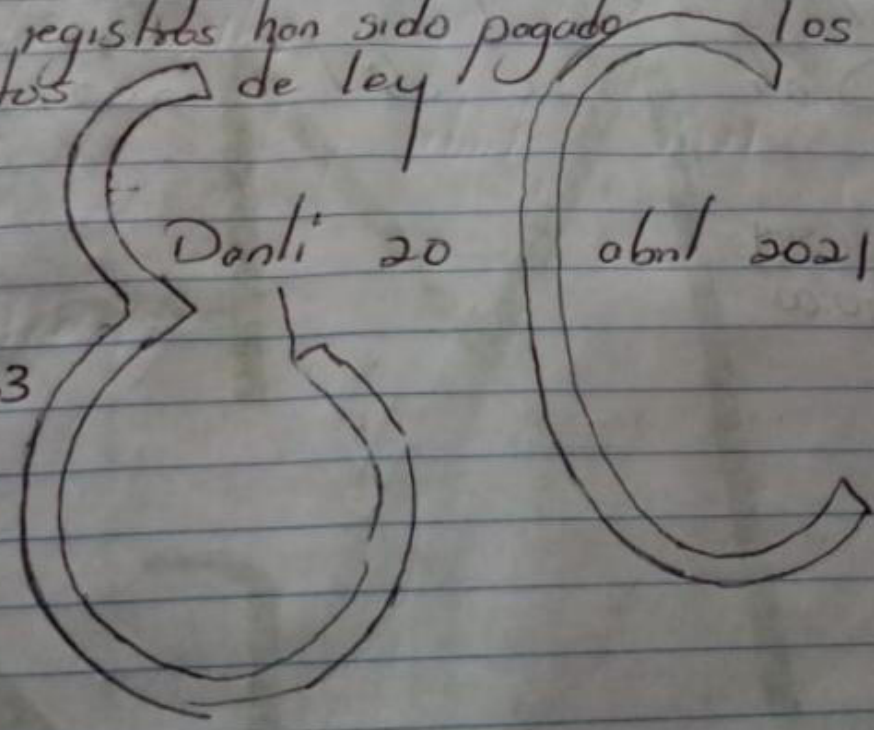 registros han sido pagado los
tos de ley
Danli 20 abril 2021
3